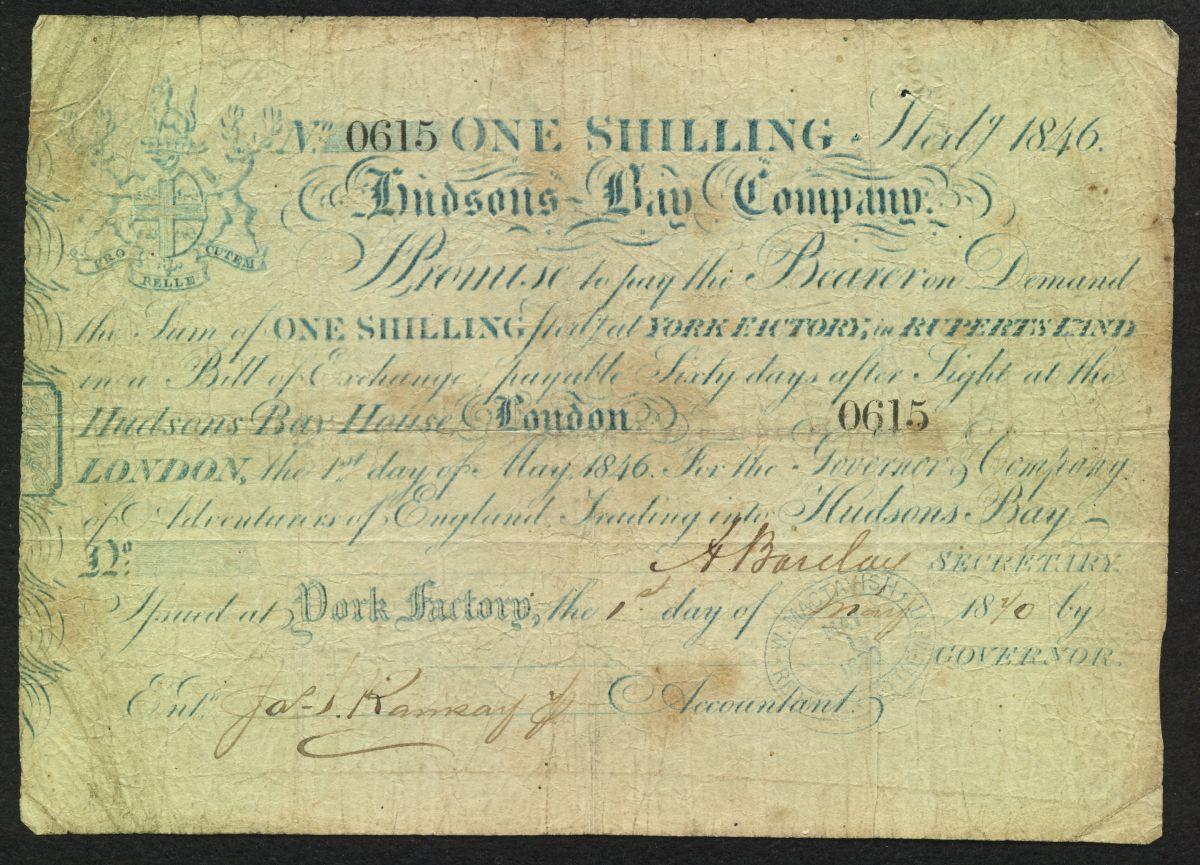 No. 0615 ONE SHILLING Sterlg 1846.
Hudsons Bay Company.
PRO PELLE CUTEM
I Promise to pay the Bearer on Demand
the Sum of ONE SHILLING sterlg at YORK FACTORY, in RUPERT'S LAND
in a Bill of Exchange, payable Sixty days after Sight at the
Hudsons Bay House, London 0615
LONDON, the 1st day of May, 1846. For the Governor & Company
of Adventurers of England Trading into Hudsons Bay
No.
A Barclay SECRETARY.
Issued at York Factory, the 1st day of May 1870 by
W. MACTAVISH
GOVERNOR.
Entd. Jas. S. Ramsay Accountant.